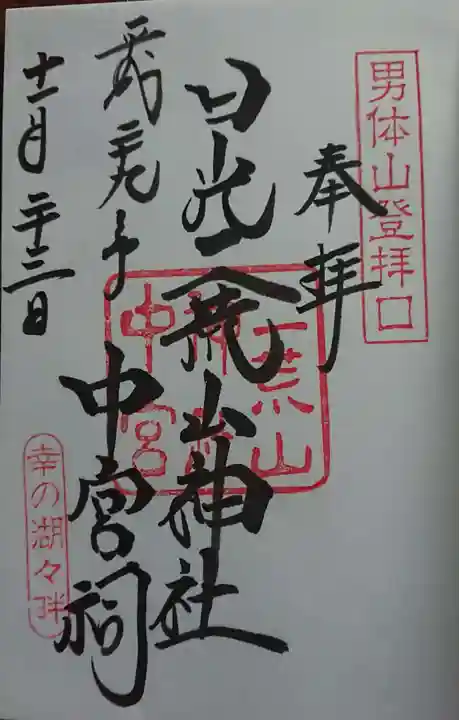 男体山登拝口
奉拝
日光二荒山神社
中宮祠
二荒山
中宮
平成二九年
十一月二十三日
幸の湖々畔